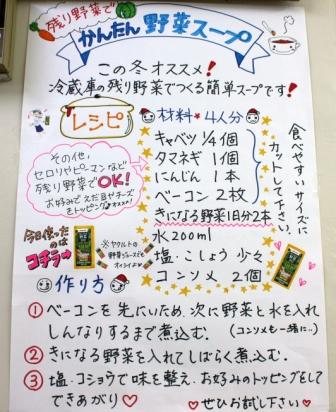 残り野菜で
かんたん野菜スープ
この冬オススメ!
冷蔵庫の残り野菜でつくる簡単スープです!
レシピ
材料*4人分
キャベツ 1/4個
タマネギ 1個
にんじん 1本
ベーコン 2枚
きになる野菜1日分2本
水200ml
塩・こしょう 少々
コンソメ 2個
食べやすいサイズに
カットして下さい。
その他、
セロリやピーマンなど
残り野菜でOK!
お好みで えだ豆やチーズ
をトッピング♪オススメ!
今日使った
のは
コチラ
※ヤクルトの
野菜ジュースでも
オイシイよ
作り方
①ベーコンを先にいため、次に野菜と水を入れ
しんなりするまで煮込む。(コンソメも一緒に..)
②きになる野菜を入れてしばらく煮込む。
③塩・コショウで味を整え、お好みのトッピングをして
できあがり♡
ぜひお試し下さい♡